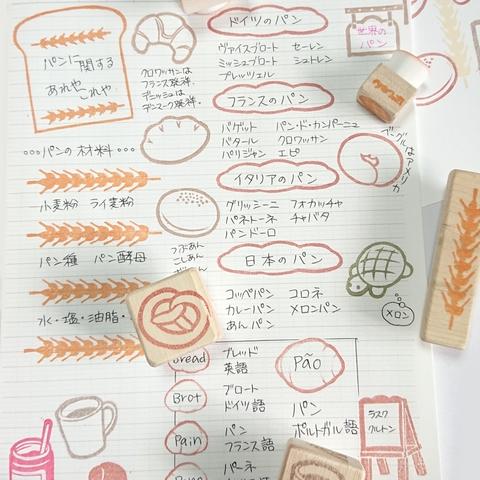 パンに関する
あれや、これや。
クロワッサンは
フランス発祥。
デニッシュは
デンマーク発祥。
…パンの材料…
小麦粉 ライ麦粉
パン種 パン酵母
水・塩・油脂・
つぶあん
こしあん
ドイツのパン
ヴァイスブロート セーレン
ミッシュブロート シュトレン
プレッツェル
世界の
パン
フランスのパン
バゲット パン・ド・カンパーニュ
バタール クロワッサン
パリジャン エピ
ベーグルはアメリカ
イタリアのパン
グリッシーニ フォカッチャ
パネトーネ チャバタ
パンドーロ
日本のパン
コッペパン コロネ
カレーパン メロンパン
あんパン
メロン
Bread
ブレッド
英語
Brot
ブロート
ドイツ語
Pain
パン
フランス語
パーネ
Pão
パン
ポルトガル語
ラスク
クルトン